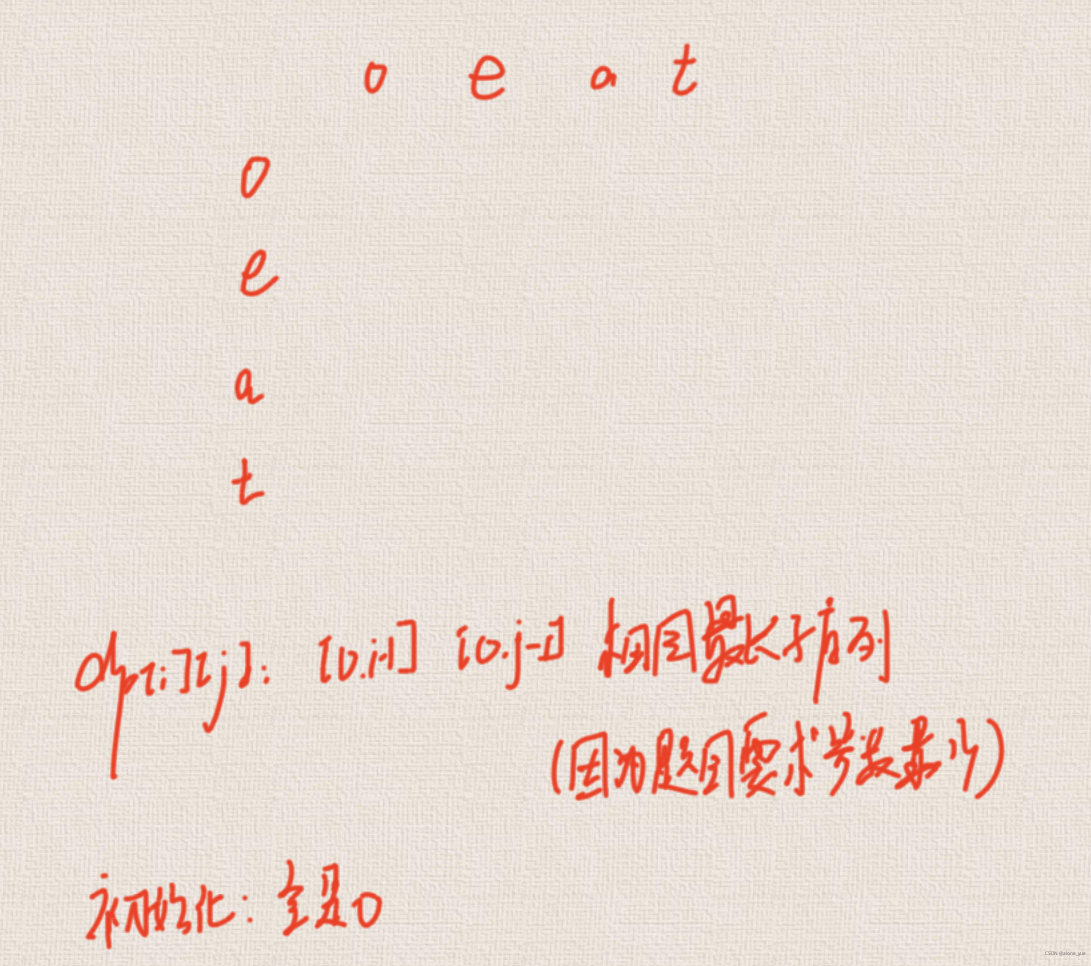 o e a t
o
e
a
t
dp[i][j]: [0,i-1] [0,j-1] 相同最长子序列
(因为题目要求步数最少)
初始化: 全是0